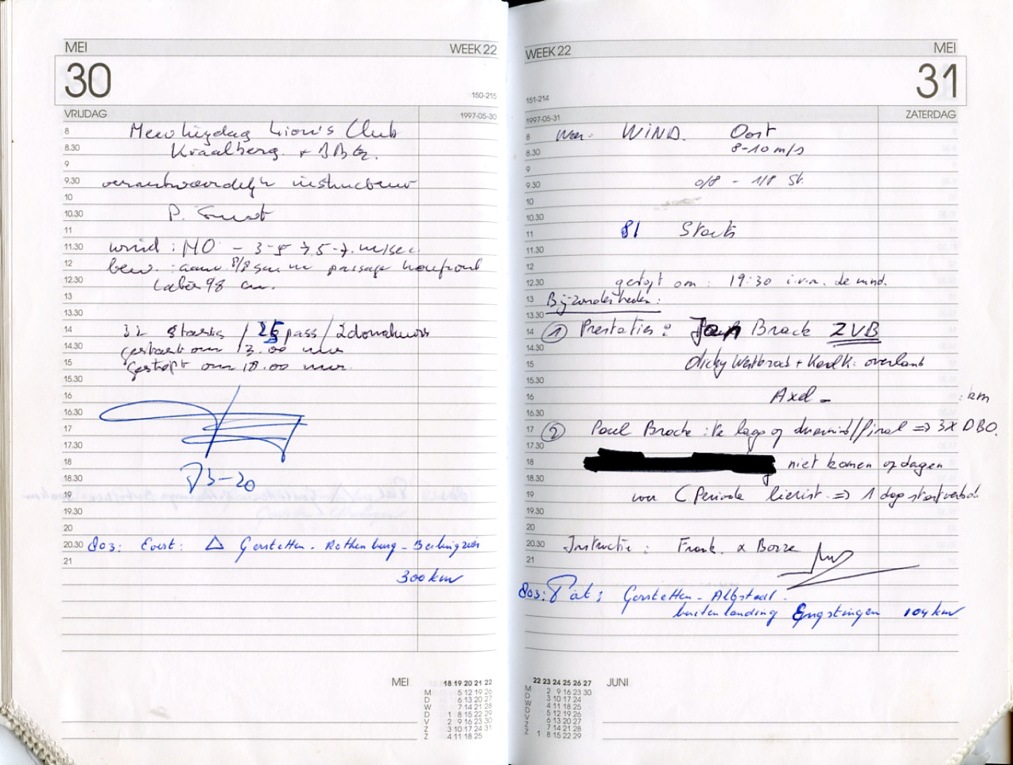 MEI WEEK 22
30
150-215
VRIJDAG 1997-05-30
8 Lion's Club
8.30 + BBQ.
9
9.30 verantwoordelijk instructeur
10 P.
10.30
11
11.30 wind: NO - 3-5 → 5-7 m/sec
12 8/8 passage
12.30 98
13
13.30
14 32 starts / 25 pass / 2 donateurs
14.30 gestart om 13.00 uur
15 gestopt om 18.00 uur
15.30
16
16.30
17
17.30
18
18.30
19
19.30
20
20.30 803: Evert: △ Gerstetten - Rothenburg -
21
300 km
MEI 18 19 20 21 22
M 5 12 19 26
D 6 13 20 27
W 7 14 21 28
D 1 8 15 22 29
V 2 9 16 23 30
Z 3 10 17 24 31
Z 4 11 18 25
WEEK 22 MEI
31
151-214
1997-05-31 ZATERDAG
8 WIND. Oost
8.30 8-10 m/s
9
9.30 0/8 - 1/8 St.
10
10.30
11 81 Starts
11.30
12
12.30 gestopt om: 19:30 i.v.m. de wind.
13 Bijzonderheden:
13.30
14 ① Prestaties: Brock ZVB
14.30
15 Dicky + overland
15.30
16 Axel - km
16.30
17 ② Paul te lage / final => 3X DBO.
17.30
18 niet komen opdagen
18.30
19 voor (Periode lierist => 1 dag startverbod.
19.30
20
20.30 Instructie: Frank &
21
803: Pat: Gerstetten - Albstadt.
buitenlanding Engstingen 104 km
22 23 24 25 26 27 JUNI
M 2 9 16 23 30
D 3 10 17 24
W 4 11 18 25
D 5 12 19 26
V 6 13 20 27
Z 7 14 21 28
Z 1 8 15 22 29